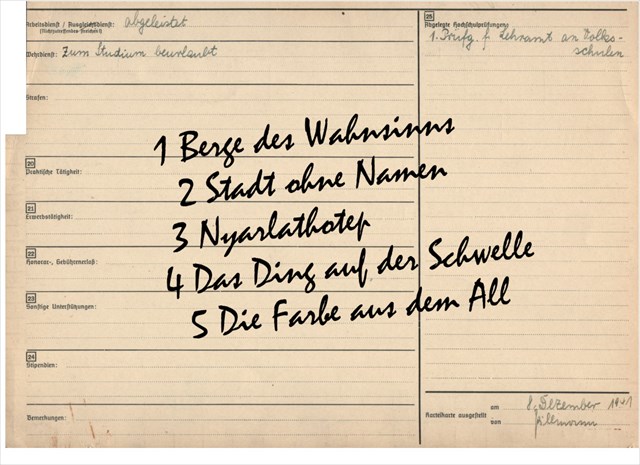 Arbeitsdienst / Ausgleichsdienst: abgeleistet
(Nichtzutreffendes streichen!)
Wehrdienst: Zum Studium beurlaubt
Strafen:
20
Praktische Tätigkeit:
21
Erwerbstätigkeit:
22
Honorar-, Gebührenerlaß:
23
Sonstige Unterstützungen:
24
Stipendien:
Bemerkungen:
25
Abgelegte Hochschulprüfungen:
1. Prüfg. f. Lehramt an Volks-
schulen
1 Berge des Wahnsinns
2 Stadt ohne Namen
3 Nyarlathotep
4 Das Ding auf der Schwelle
5 Die Farbe aus dem All
Karteikarte ausgestellt
am 8. Dezember 1941
von